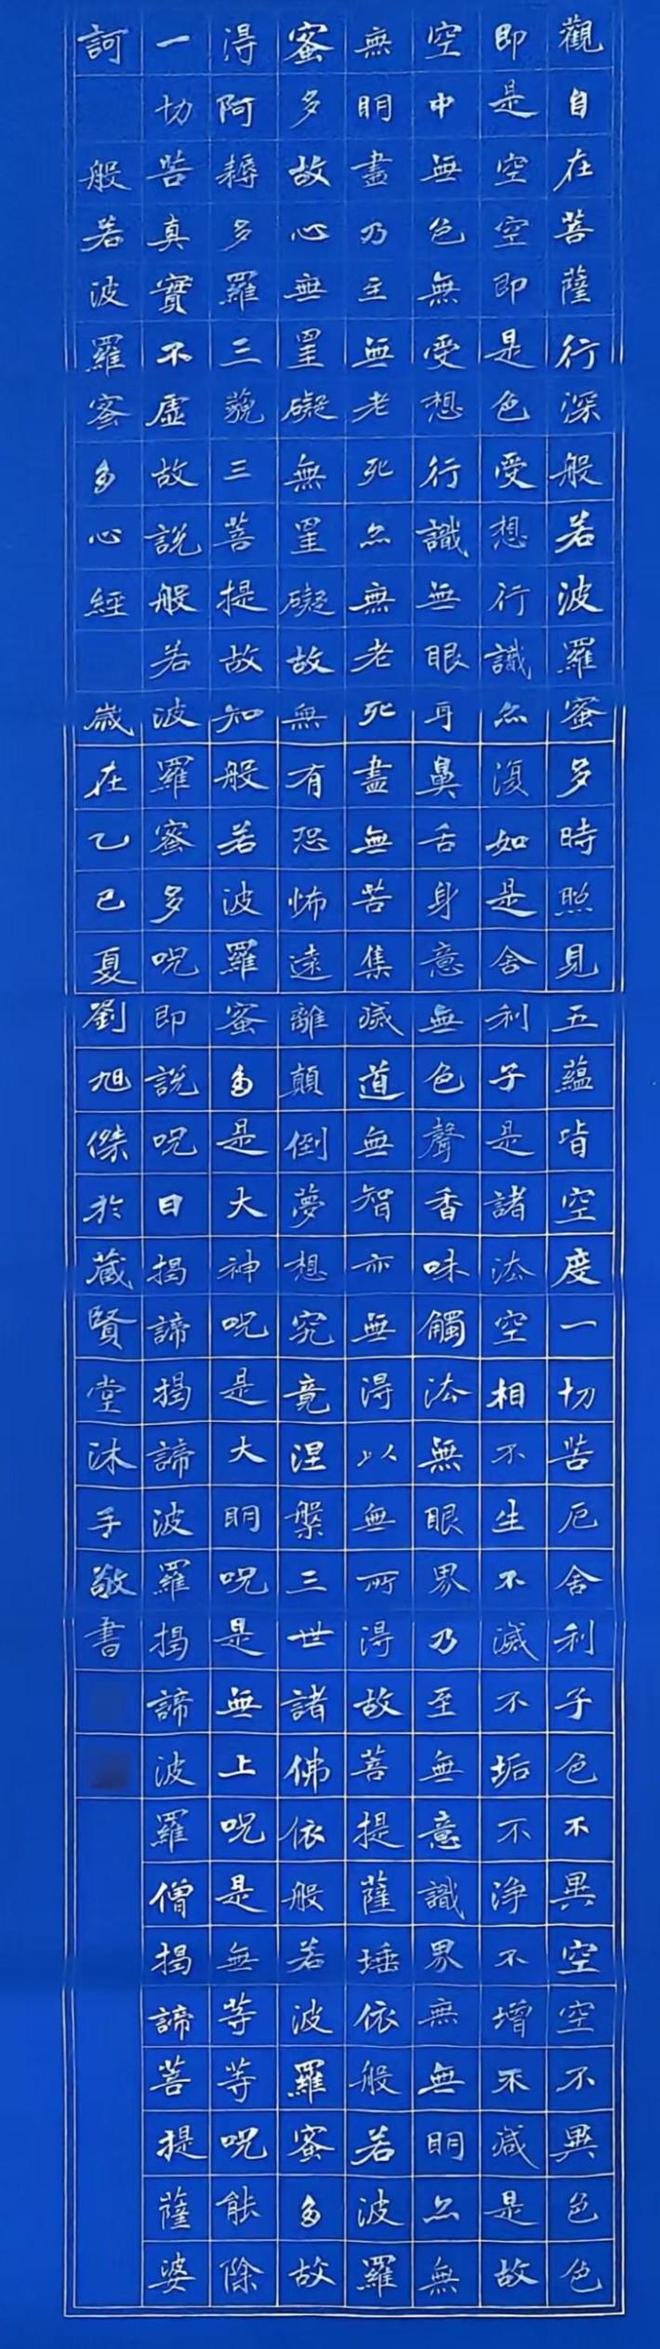 觀自在菩薩行深般若波羅蜜多時照見五蘊皆空度一切苦厄舍利子色不異空空不異色色
即是空空即是色受想行識亦復如是舍利子是諸法空相不生不滅不垢不淨不增不減是故
空中無色無受想行識無眼耳鼻舌身意無色聲香味觸法無眼界乃至無意識界無無明亦無
無明盡乃至無老死亦無老死盡無苦集滅道無智亦無得以無所得故菩提薩埵依般若波羅
蜜多故心無罣礙無罣礙故無有恐怖遠離顛倒夢想究竟涅槃三世諸佛依般若波羅蜜多故
得阿耨多羅三藐三菩提故知般若波羅蜜多是大神呪是大明呪是無上呪是無等等呪能除
一切苦真實不虛故說般若波羅蜜多呪即說呪曰揭諦揭諦波羅揭諦波羅僧揭諦菩提薩婆
訶 般若波羅蜜多心經 歲在乙巳夏劉旭傑於藏賢堂沐手敬書